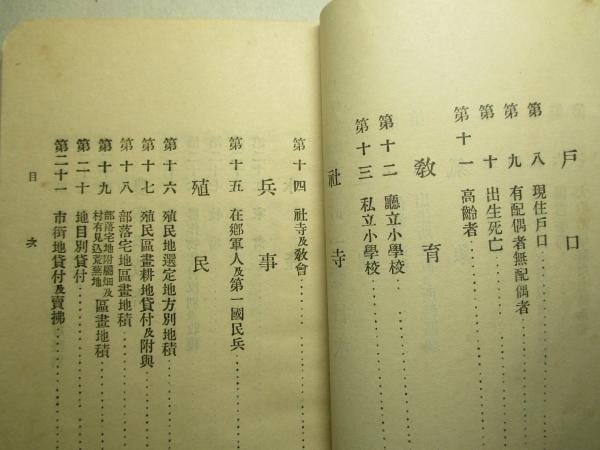 戶口
第八 現住戶口
第九 有配偶者無配偶者
第十 出生死亡
第十一 高齡者
敎育
第十二 廳立小學校
第十三 私立小學校
社寺
第十四 社寺及敎會
兵事
第十五 在鄕軍人及第一國民兵
殖民
第十六 殖民地選定地方別地積
第十七 殖民區畫耕地貸付及附與
第十八 部落宅地區畫地積
第十九 部落宅地附屬畑及村有見込荒蕪地區畫地積
第二十 地目別貸付
第二十一 市街地貸付及賣拂
目次